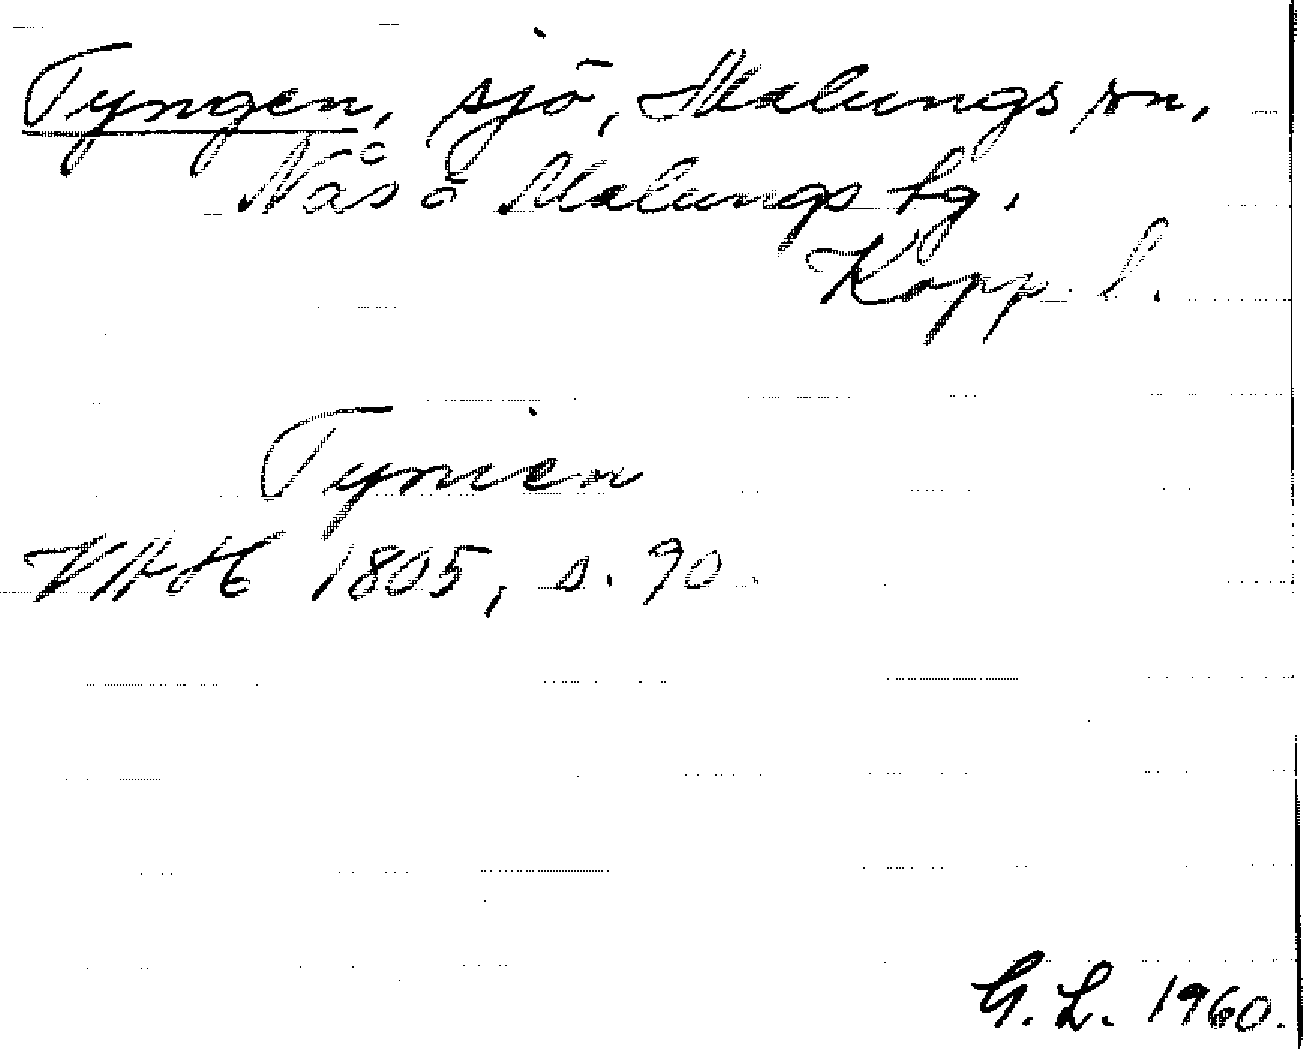 Tyngen, sjö, Malungs sn,
Nås o Malungs tg.
Kopp. l.
Tynien
VHAH 1805, s. 90.
G. L. 1960.